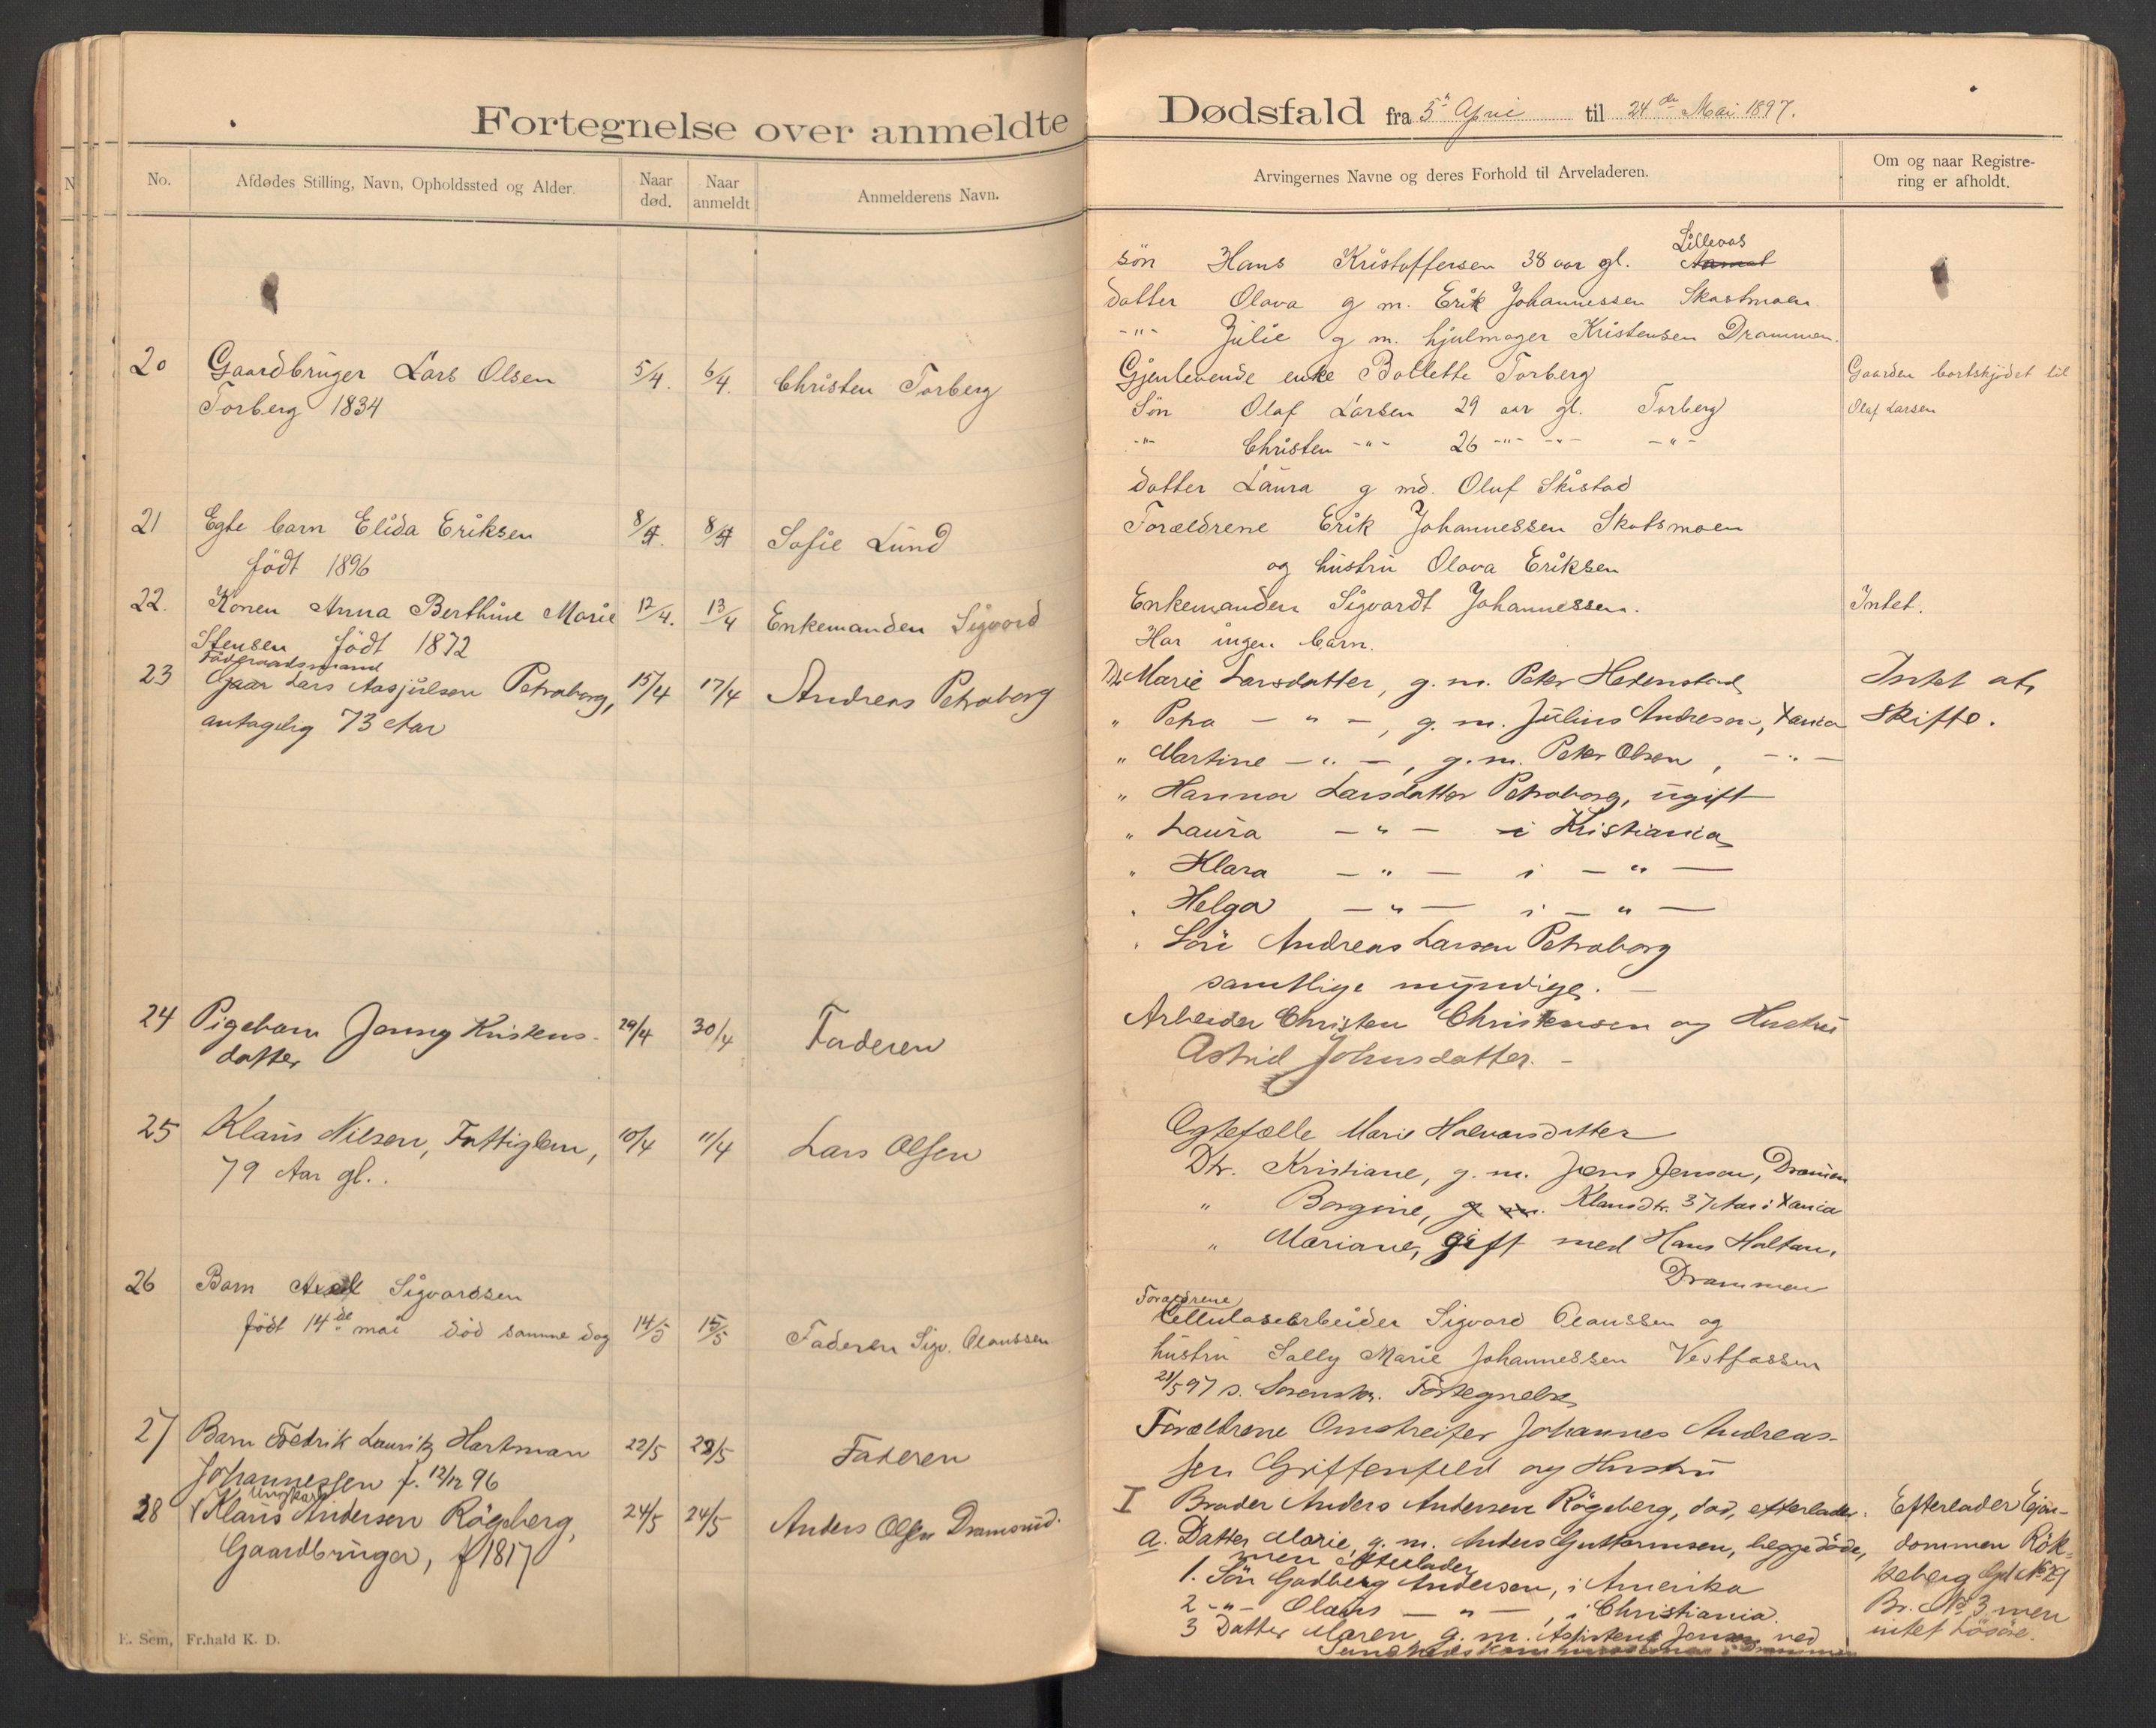 Fortegnelse over anmeldte
No. Afdødes Stilling, Navn, Opholdssted og Alder. Naar død. Naar anmeldt Anmelderens Navn.
20 Gaardbruger Lars Olsen 5/4. 6/4. Christen Torberg
Torberg 1834
21 Egte barn Elida Eriksen 8/4. 8/4 Sofie Lund
født 1896
22. Konen Anna Berthine Marie 12/4. 13/4 Enkemanden Sigvard
Stensen født 1872
Føderaadsmand
23 Lars Aasjulsen Petraborg, 15/4 17/4 Andreas Petraborg
antagelig 73 Aar
24 Pigebarn Jenny Kristens- 29/4 30/4 Faderen
datter
25 Klaus Nilsen, Fattiglem, 10/4 11/4 Lars Olsen
79 Aar gl..
26 Barn Axel Sigvardsen
født 14de mai død samme dag 14/5 15/5 Faderen Sigv. Olaussen
27 Barn Fredrik Lauritz Hartman 22/5 28/5 Faderen
Johannessen f. 12/12 96
Ungkarl
28 Klaus Andersen Rögeberg, 24/5 24/5 Anders Olsen Dramsrud.
Gaardbruger, f 1817
E. Sem, Fr.hald K. D.
Dødsfald fra 5te April til 24de Mai 1897.
Arvingernes Navne og deres Forhold til Arveladeren. Om og naar Registre-
ring er afholdt.
Lilleaas
søn Hans Kristoffersen 38 aar gl.
Datter Olava g m. Erik Johannessen Skastmoen
-"- Julie g m. hjulmager Kristensen Drammen.
Gjenlevende enke Bollette Torberg Gaarden bortskjødet til
Søn Olaf Larsen 29 aar gl. Torberg Olaf Larsen
-"- Christen -"- 26 -"- -"- -"-
Datter Laura g md. Oluf Skistad
Forældrene Erik Johannessen Skotsmoen
og hustru Olava Eriksen
Enkemanden Sigvardt Johannessen. Intet.
Har ingen barn.
Dtr Marie Larsdatter, g. m. Peter Hedenstad Intet at
" Petra — " —, g. m. Julius Andresen, Xania skifte.
" Martine — " —, g. m. Peter Olsen, — " —
" Hanna Larsdatter Petraborg, ugift
" Laura — " — i Kristiania
" Klara — " — i — " —
" Helga — " — i — " —
" Søn Andreas Larsen Petraborg
samtlige myndige. —
Arbeider Christen Christensen og Hustru
Astrid Johnsdatter. —
Egtefælle Marie Halvorsdatter
Dtr. Kristiane, g. m. Jens Jensen, Drammen
" Borgine, g. m. Klausdtr. 37 Aar i Xania
" Mariane, gift med Hans Holtan,
Drammen
Forældrene
Cellulosearbeider Sigvard Olaussen og
hustru Sally Marie Johannessen Vestfossen
21/5 97 s. Sorenskr. Fortegnelse
Forældrene Omstreifer Johannes Andreas-
sen Griffenfeld og Hustru
I Broder Anders Andersen Rögeberg, død, efterlader: Efterlader Ejen-
a. Datter Marie, g. m. Anders Guttormsen, begge døde, dommen Røk-
men efterlader
1. Søn Gudberg Andersen, i Amerika keberg Gd No 29
2 -"- Olaus — " —, i Christiania. Br. No 3 men
3 Datter Maren g. m. Assistent Jensen ved intet Løsøre.
Sundhedskommissionen i Drammen